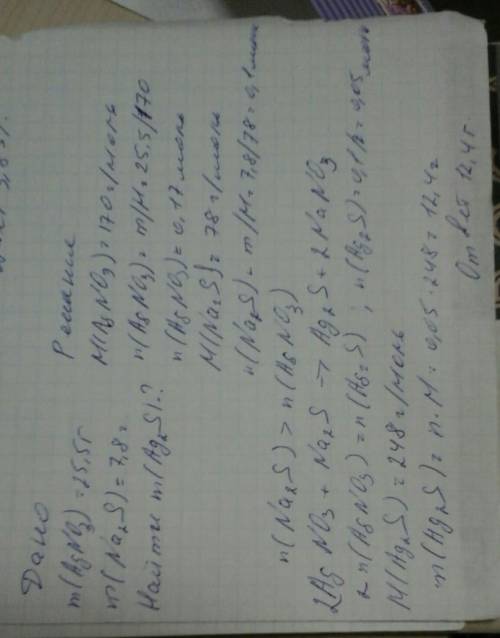 Дано
m(AgNO3)=25,5г
m(Na2S)=7,8г
Найти m(Ag2S)-?
Решение
M(AgNO3)=170г/моль
n(AgNO3)=m/M=25,5/170
n(AgNO3)=0,17моль
M(Na2S)=78г/моль
n(Na2S)=m/M=7,8/78=0,1моль
n(Na2S)>n(AgNO3)
2AgNO3+Na2S→Ag2S+2NaNO3
2n(AgNO3)=n(Ag2S); n(Ag2S)=0,1/2=0,05моль
M(Ag2S)=248г/моль
m(Ag2S)=n·M=0,05·248=12,4г
Ответ 12,4г